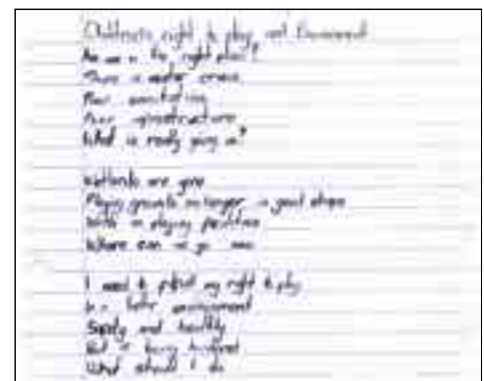 Children's right to play and Environment
Are we in the right place?
There is water crisis
Poor sanitation
Poor infrastructure
What is really going on?
Wetlands are gone
Playing grounds no longer in good shape
playing facilities
Where can we go now
I need to protect my right to play
In a better environment
Safely and healthy
But it being hindered
What should I do